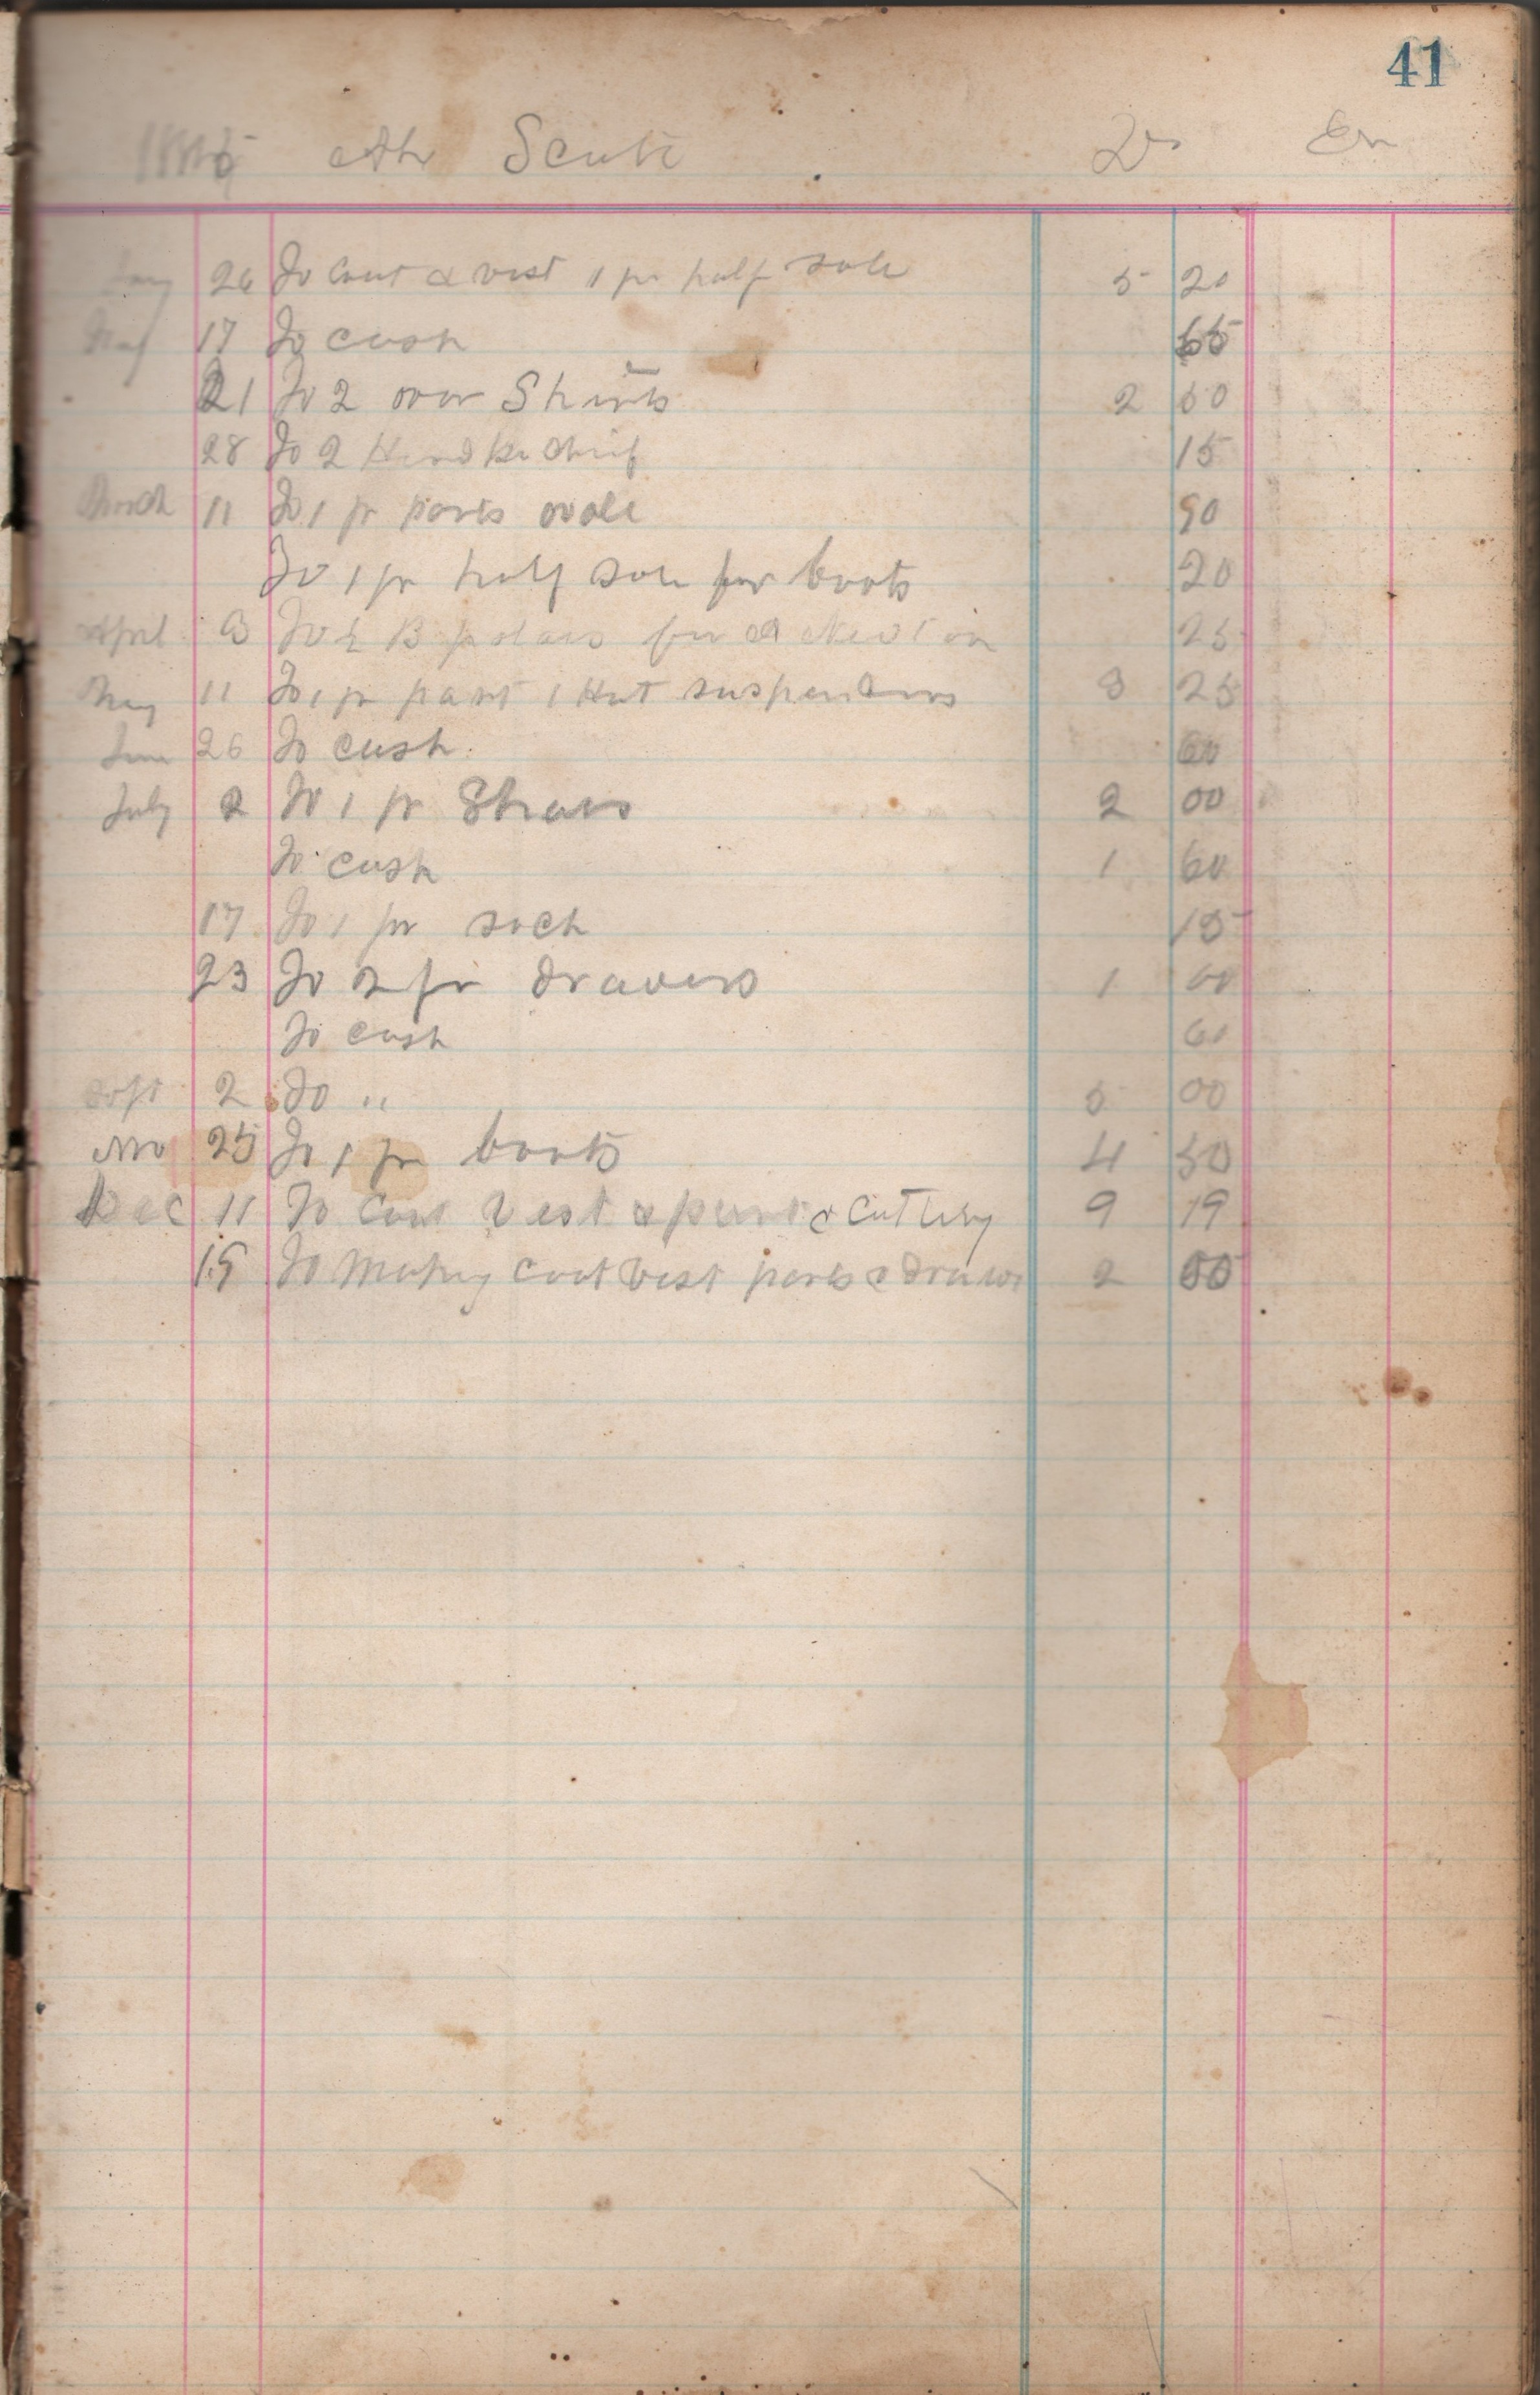 41
Dr Cr
26 To Coat & vest 1 pr half sole 5 20
17 To cash
21 To 2 over Shirts 2 50
28 To 2 Hand ke chief 15
March 11 To 1 pr pants 90
To 1 pr half sole for boots 20
April 3 To B for 25
May 11 To 1 pr pant 1 Hat suspenders 3 25
June 26 To cash 60
July 2 To 1 pr Shoes 2 00
To cash 1 60
17 To 1 pr sock 15
23 To 2 pr drawers 1 00
To cash
Sept 2 To " 5 00
Nov 25 To 1 pr boots 4 50
Dec 11 To Coat Vest & pant & Cutting 9 19
15 To Making Coat Vest pants & draws 2